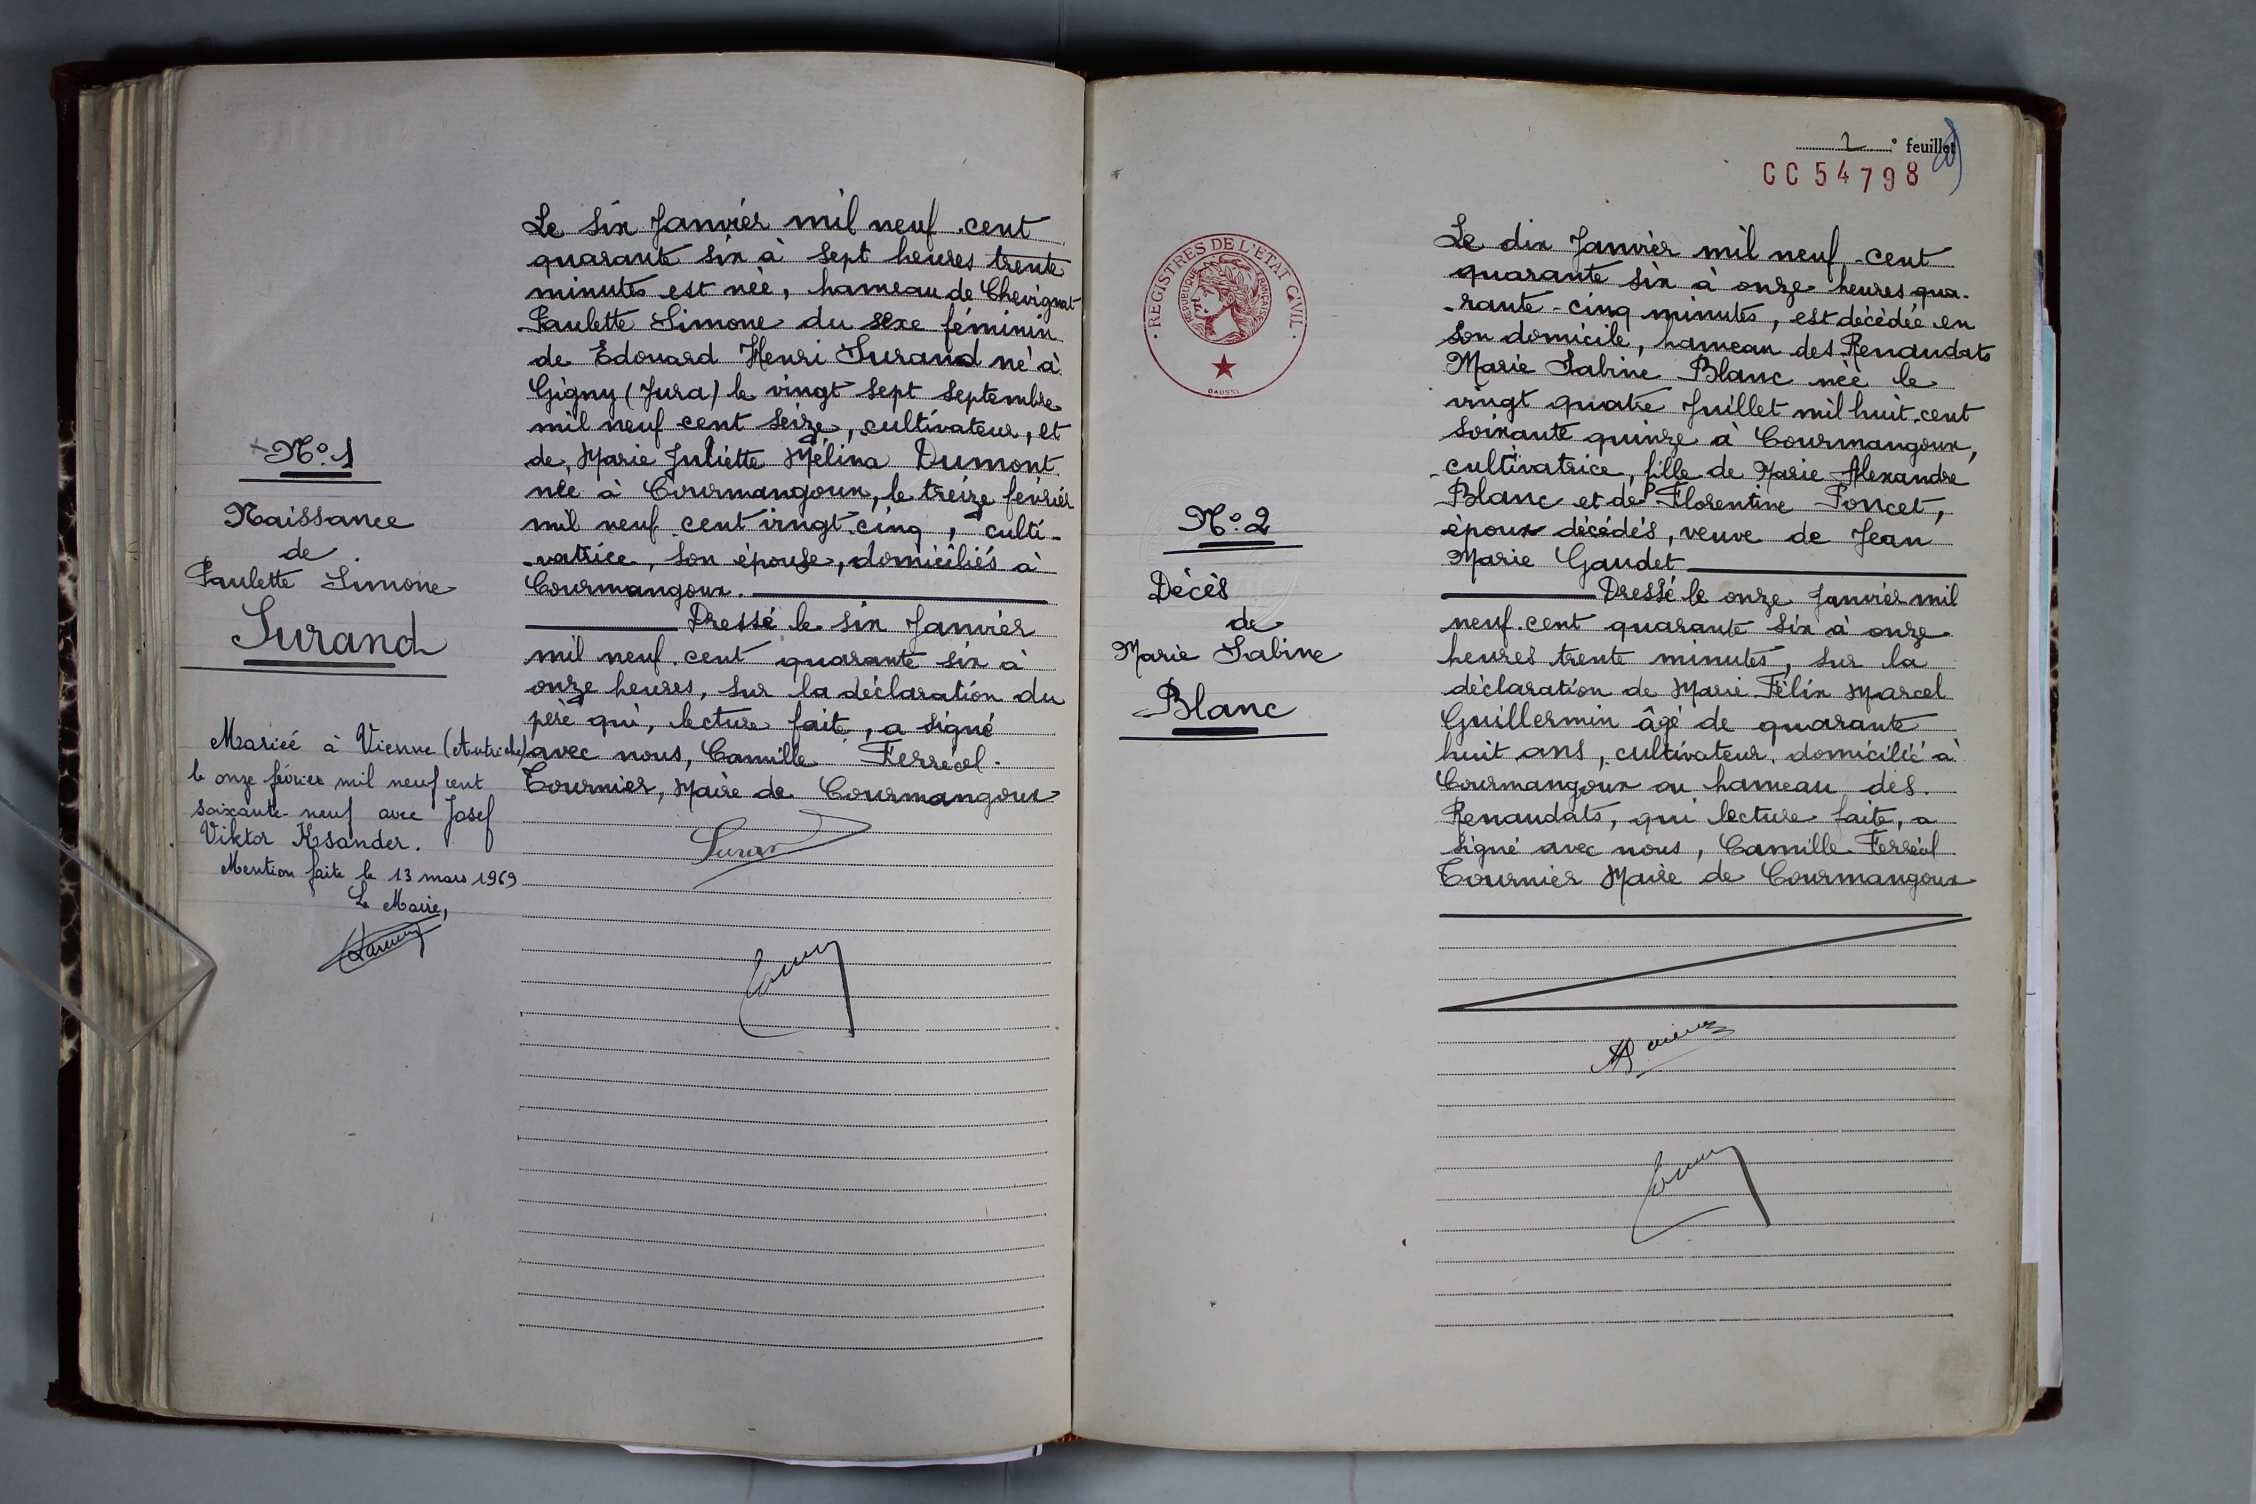 N°. 1
Naissance
de
Paulette Simone
Surand
Mariée à Vienne (Autriche)
le onze février mil neuf cent
soixante-neuf avec Josef
Viktor Ksander.
Mention faite le 13 mars 1969
Le Maire,
Le six Janvier mil neuf cent
quarante six à sept heures trente
minutes est née, hameau de Chevignat
Paulette Simone du sexe féminin
de Edouard Henri Surand né à
Gigny (Jura) le vingt sept septembre
mil neuf cent seize, cultivateur, et
de, Marie Juliette Mélina Dumont
née à Courmangoux, le treize février
mil neuf cent vingt cinq, culti-
-vatrice, son épouse, domiciliés à
Courmangoux.
Dressé le six Janvier
mil neuf cent quarante six à
onze heures, sur la déclaration du
père qui, lecture faite, a signé
avec nous, Camille Ferréol
Tournier, Maire de Courmangoux
2 ° feuillet
CC 54798
REGISTRES DE L'ETAT CIVIL
REPUBLIQUE FRANÇAISE
DAUSSY
N°. 2
Décès
de
Marie Sabine
Blanc
Le dix Janvier mil neuf cent
quarante six à onze heures qua-
-rante-cinq minutes, est décédée en
son domicile, hameau des Renaudats
Marie Sabine Blanc née le
vingt quatre Juillet mil huit cent
soixante quinze à Courmangoux,
cultivatrice, fille de Marie Alexandre
Blanc et de Florentine Poncet,
époux décédés, veuve de Jean
Marie Gaudet
Dressé le onze Janvier mil
neuf cent quarante six à onze
heures trente minutes, sur la
déclaration de Marie Félix Marcel
Guillermin âgé de quarante
huit ans, cultivateur, domicilié à
Courmangoux au hameau des
Renaudats, qui lecture faite, a
signé avec nous, Camille Ferréol
Tournier Maire de Courmangoux